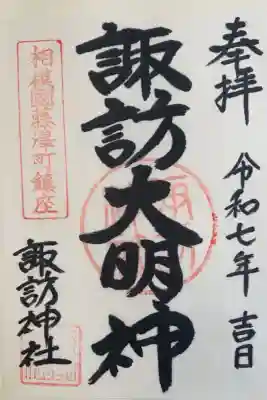 奉拝 令和七年 吉日
諏訪大明神
相模國藤澤町鎮座
諏訪神社